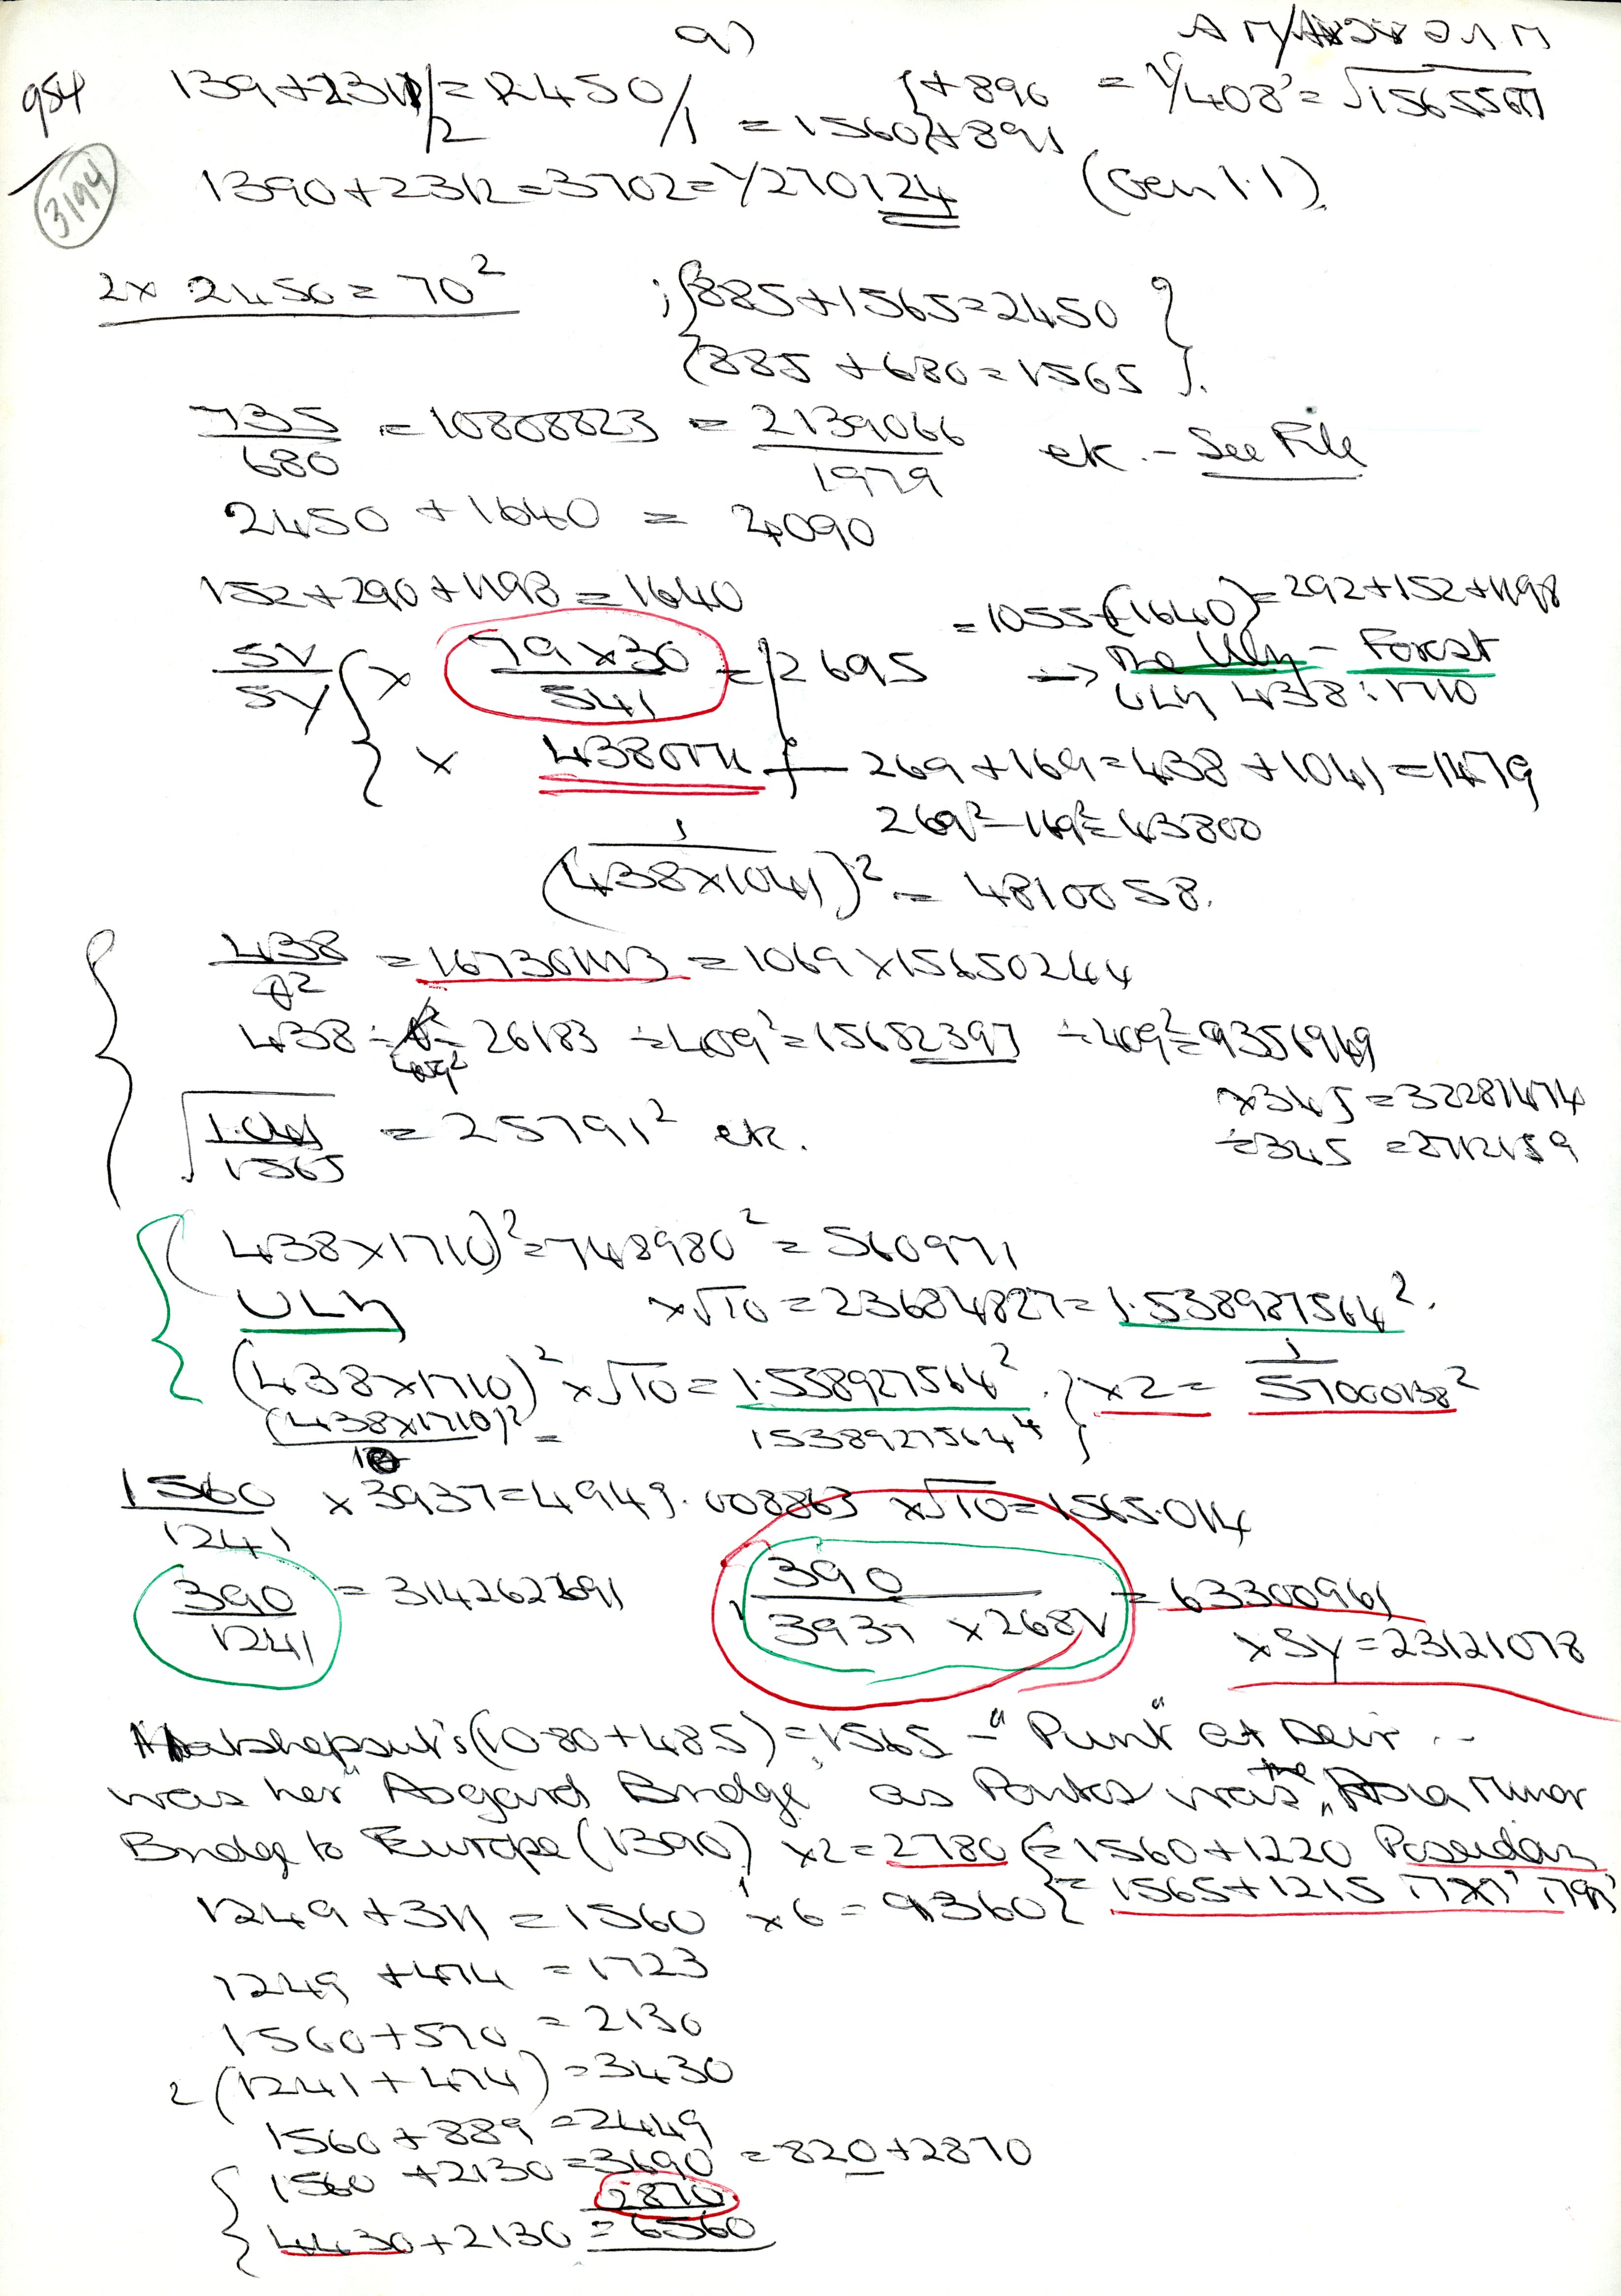 a)
954
139+2311/2 = 2450/1 = 1560 {+896 +891 = 1/408² = √1565567
3194
1390+2312=3702=1/270124 (Gen 1.1)
2x 2450 = 70² ; {885+1565=2450
{885 +680=1565 }.
735/680 = 10808823 = 2139066/1979 etc. - See File
2450 + 1640 = 4090
152+290+1198=1640
= 1055+(1640)=292+152+1198
SV/SY { x 79x30/541 = 2695 → The Ully - Forest
ULLy 438:1710
} x 438077L 269+169=438+1041=1479
269²-169²=43800
1/(438x1041)² = 4810058.
438/A² = 16736113 = 1069x15650244
438 ÷ 409² = 26183 ÷409²=15652397 ÷409²=9356969
x345=32281474
÷345 =2712159
√1.041/1565 = 25791² etc.
(438x1710)²=748980² = 560971
ULLy x√10 = 23684827=1.538927564².
(438x1710)² x√10 = 1.538927564². } x2 = 1/57000138²
(438x1710)²/10 = 1538927564⁴
1560/1241 x3937=4949.008863 x√10=1565.014
390/1241 = 314262691 √390/3937 x268V = 63300961
xSY=23121078
Hatshepsut's (1080+485)=1565 - "Punt" at Deir ..
was her "Asgard Bridge" as Pontus was the "Asia Minor
Bridge to Europe (1390) x2=2780 {=1560+1220 Poseidon
1249+311 = 1560 x6 = 9360 }=1565+1215
1249 +474 = 1723
1560+570 = 2130
2(1241+474)=3430
1560+889=2449
1560 +2130=3690 =820+2870
2870
4430+2130 =6560